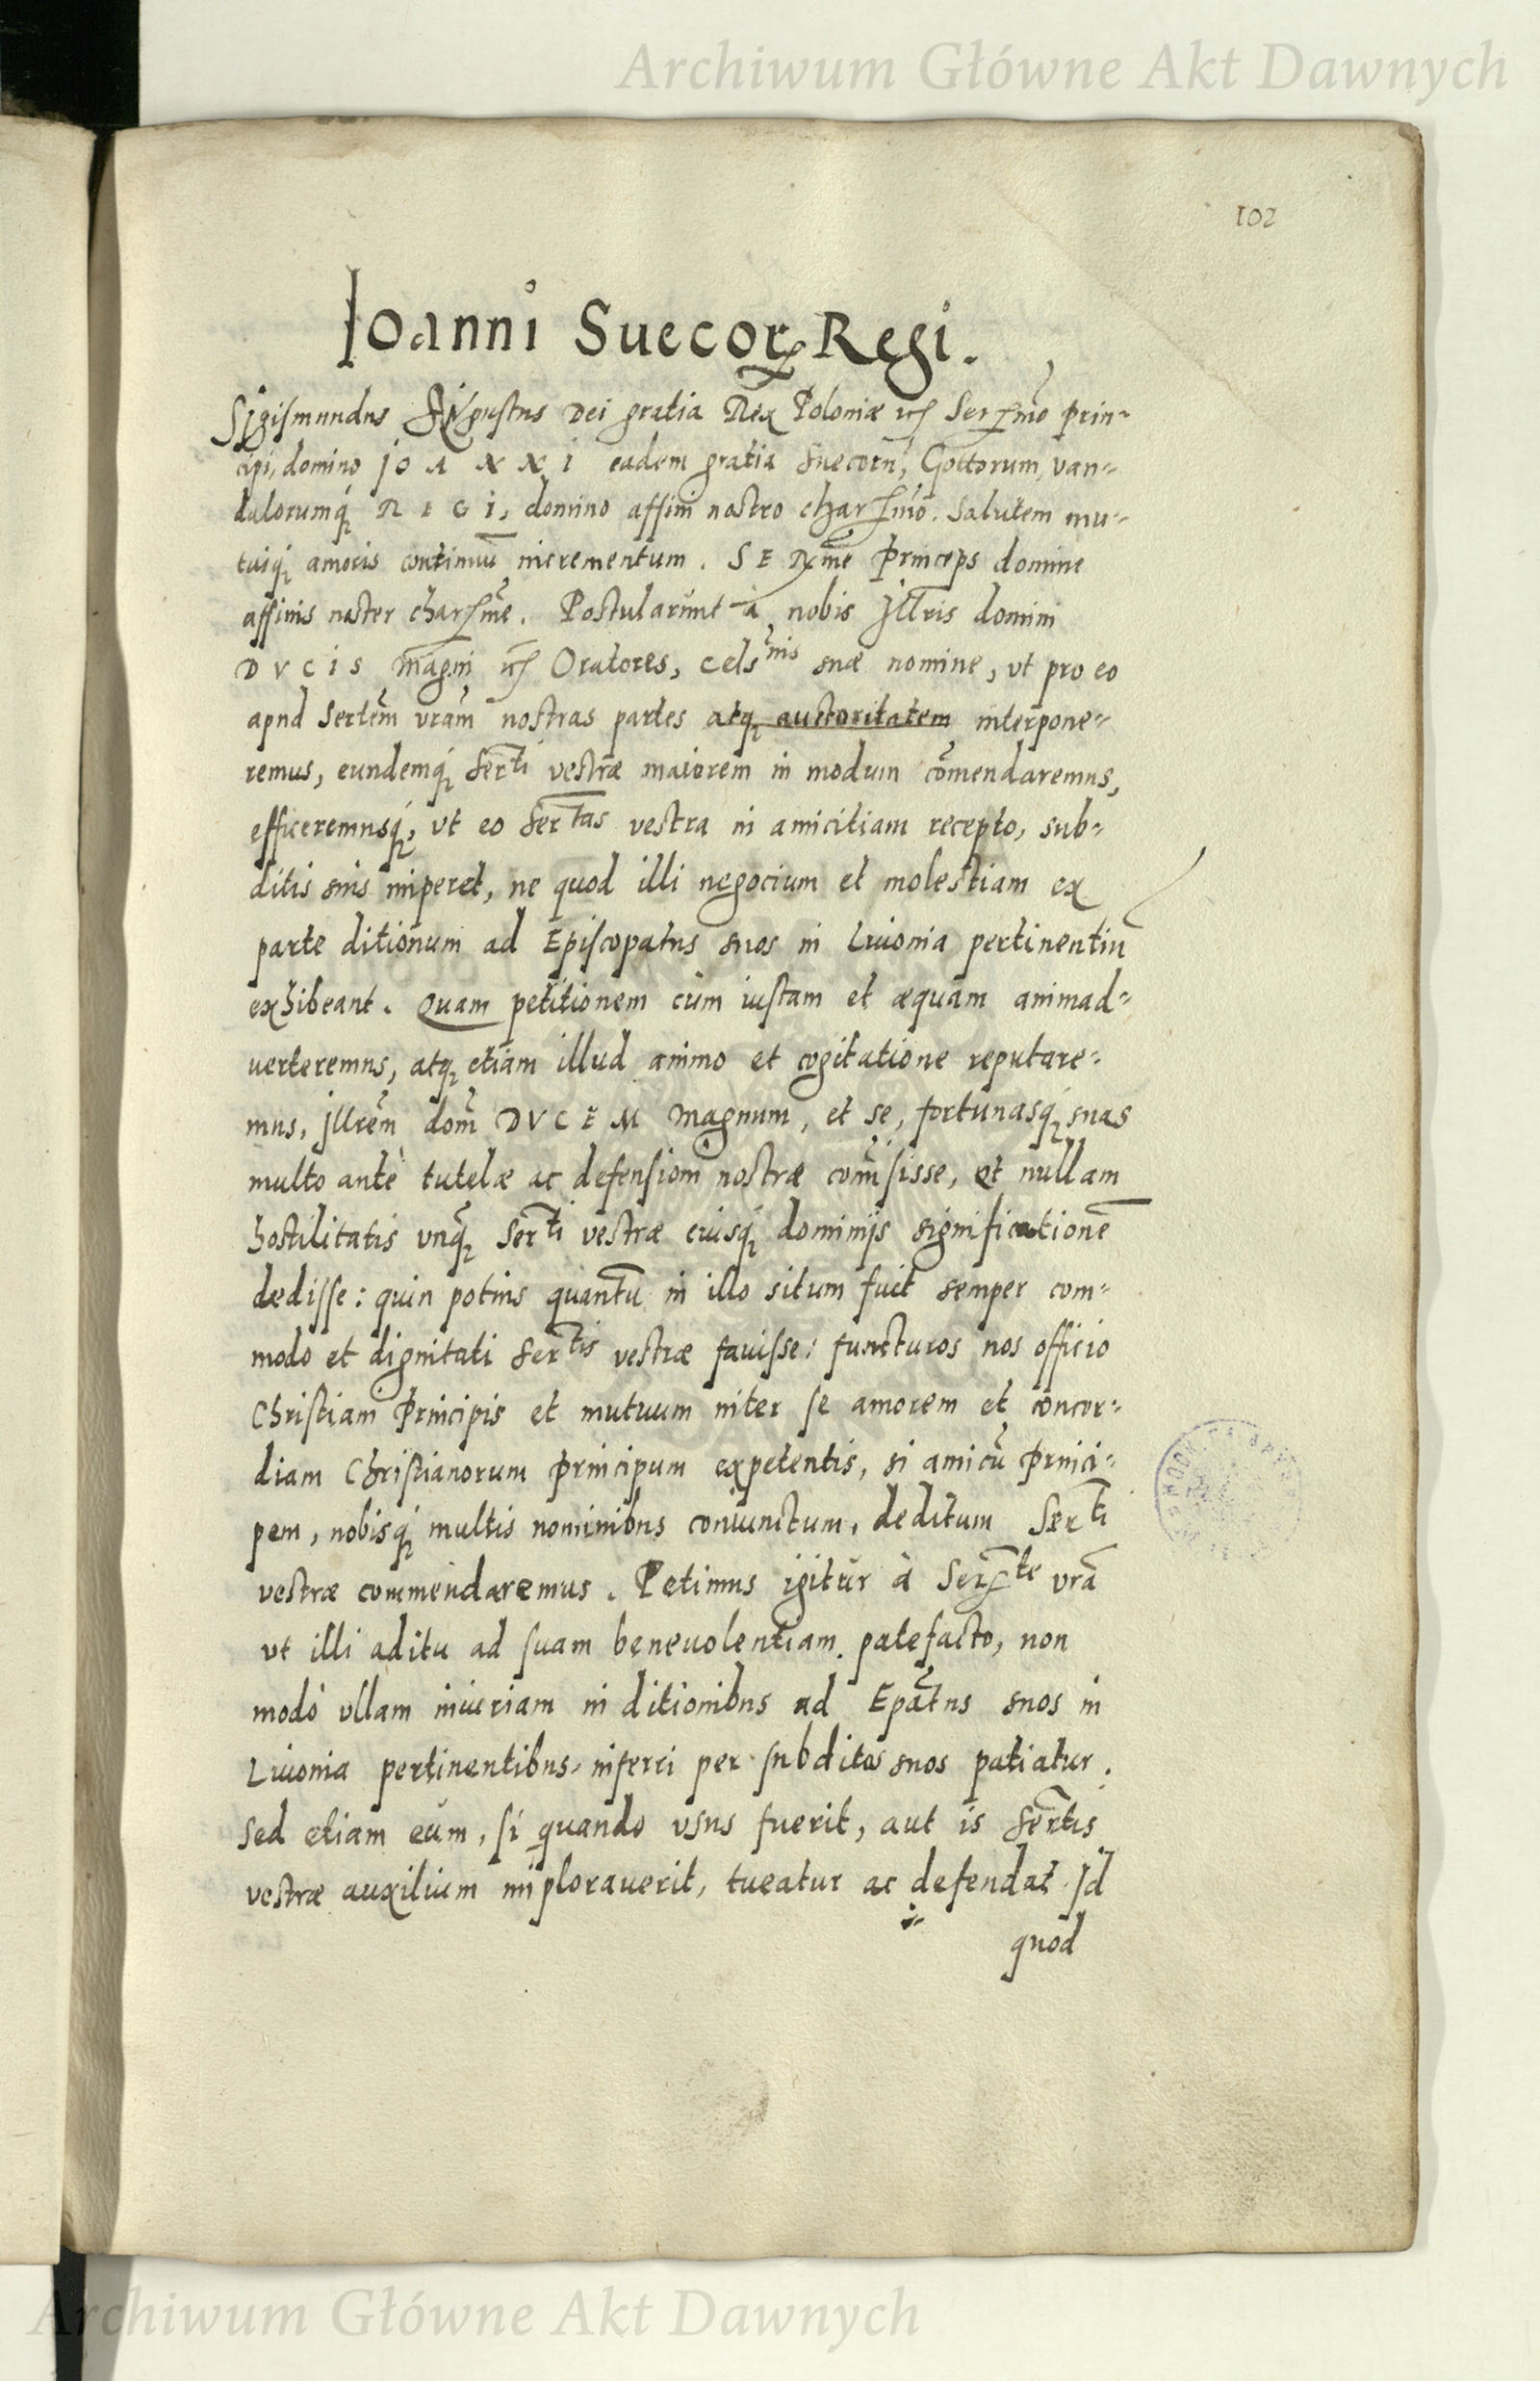 Archiwum Główne Akt Dawnych
102
Ioanni Suecorꝝ Regi.
Sigismundus Augustus Dei gratia Rex Poloniæ etc Serᵐᵒ Prin=
cipi, domino IOANNI eadem gratia Suecorū, Gottorum, van=
dalorumq́ꝫ REGI, domino affini nostro charᵐᵒ. Salutem mu=
tuiqꝫ amoris continuū incrementum. SERᵐᵉ Princeps domine
affinis noster charᵐᵉ. Postularunt à nobis Illris domini
DVCIS Magni etc Oratores, Celsⁿⁱˢ suæ nomine, vt pro eo
apud Sertem vram nostras partes atqꝫ auctoritatem interpone=
remus, eundemq́ꝫ Serᵗⁱ vestræ maiorem in modum cōmendaremus,
efficeremusq́ꝫ, vt eo Serᵗᵃˢ vestra in amicitiam recepto, sub=
ditis suis imperet, ne quod illi negocium et molestiam ex
parte ditionum ad Episcopatus suos in Liuonia pertinentiū
exhibeant. Quam petitionem cùm iustam et æquam animad=
uerteremus, atqꝫ etiam illud animo et cogitatione reputare=
mus, Illrem dom̄ DVCEM Magnum, et se, fortunasq́ꝫ suas
multo antè tutelæ ac defensioni nostræ com̄isisse, et nullam
hostilitatis vnq̄ꝫ Serᵗⁱ vestræ eiusq́ꝫ dominijs significationē
dedisse: quin potius quantū in illo situm fuit semper com=
modo et dignitati Serᵗⁱˢ vestræ fauisse: functuros nos officio
Christiani Principis et mutuum inter se amorem et concor=
diam Christianorum Principum expetentis, si amicū Princi=
pem, nobisq́ꝫ multis nominibus coniunctum, deditum Serᵗⁱ
vestræ commendaremus. Petimus igitur à Serᵗᵉ vrā
vt illi aditu ad suam beneuolentiam patefacto, non
modò vllam iniuriam in ditionibus ad Epātus suos in
Liuonia pertinentibus inferri per subditos suos patiatur.
Sed etiam eum, si quando vsus fuerit, aut is Sertis
vestræ auxilium implorauerit, tueatur ac defendat. Id
quod
Archiwum Główne Akt Dawnych